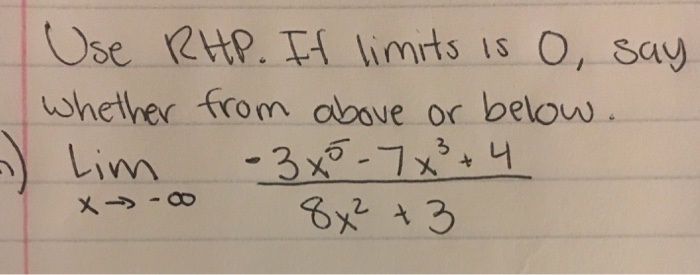 Use RHP. If limits is 0, say
whether from above or below.
) Lim x → -∞ (-3x⁵ - 7x³ + 4) / (8x² + 3)